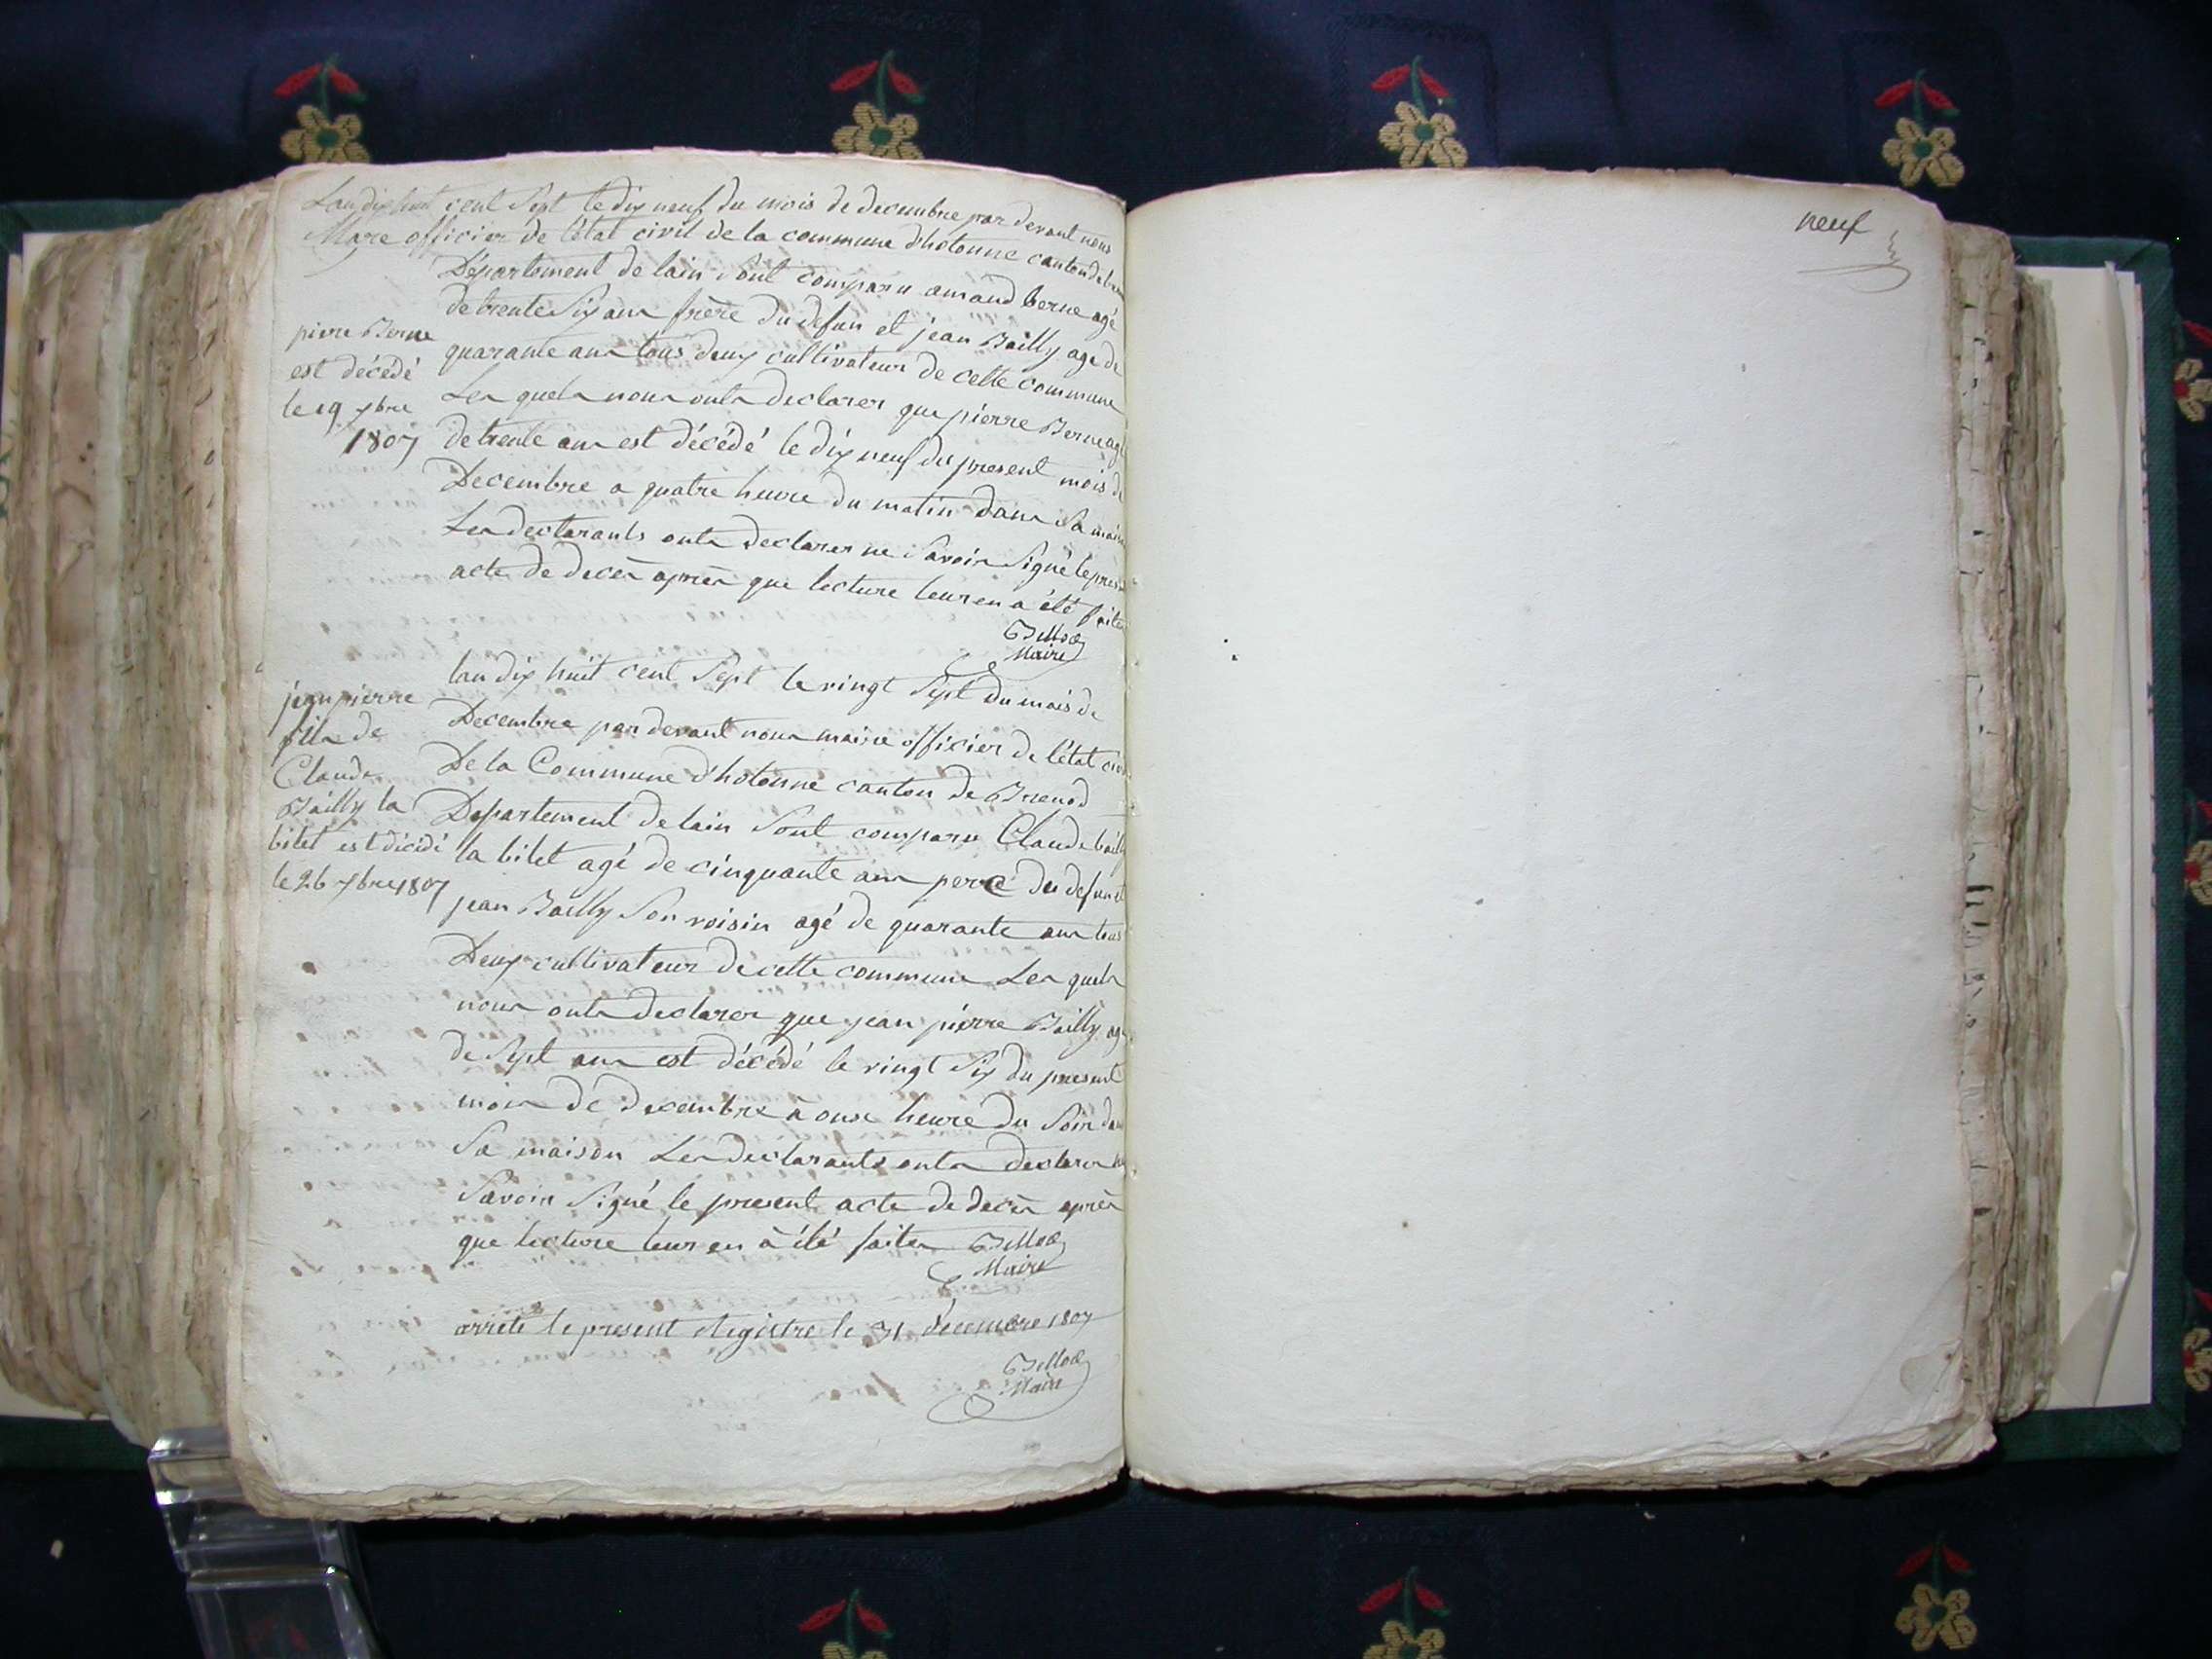 Lan dix huit cent Sept le dix neuf du mois de decembre par devant nous
Maire officier de létat civil de la commune d'hotonne canton de
Département de lain Sont comparu amand berne agé
de trente Six ans frère du defun et jean Bailly age de
quarante ans tous deux cultivateur de cette commune
Les quels nous onts declarer que pierre Berne agé
de trente ans est décédé le dix neuf du present mois de
Decembre a quatre heure du matin dans Sa
Les declarants onts declarer ne Savoir Signé le
acte de decès après que lecture leur en a été faites
pierre Berne
est décédé
le 19 xbre
1807
Maire
lan dix huit cent Sept le vingt Sept du mois de
Decembre par devant nous maire officier de létat
De la Commune d'hotonne canton de Brenod
Departement de lain Sont comparu Claude bailly
la bilet agé de cinquante ans perre du defun et
jean Bailly Son voisin agé de quarante ans tous
Deux cultivateur de cette commune Les quels
nous onts declarer que jean pierre Bailly agé
de Sept ans est décédé le vingt Six du present
mois de decembre à onze heure du Soir dans
Sa maison Les declarants onts declarer
Savoir Signé le present acte de decès après
que lecture leur en à été faites
jean pierre
fils de
Claude
Bailly la
bilet est décédé
le 26 xbre 1807
Maire
arrêté le present Registre le 31 decembre 1807
Maire
neuf